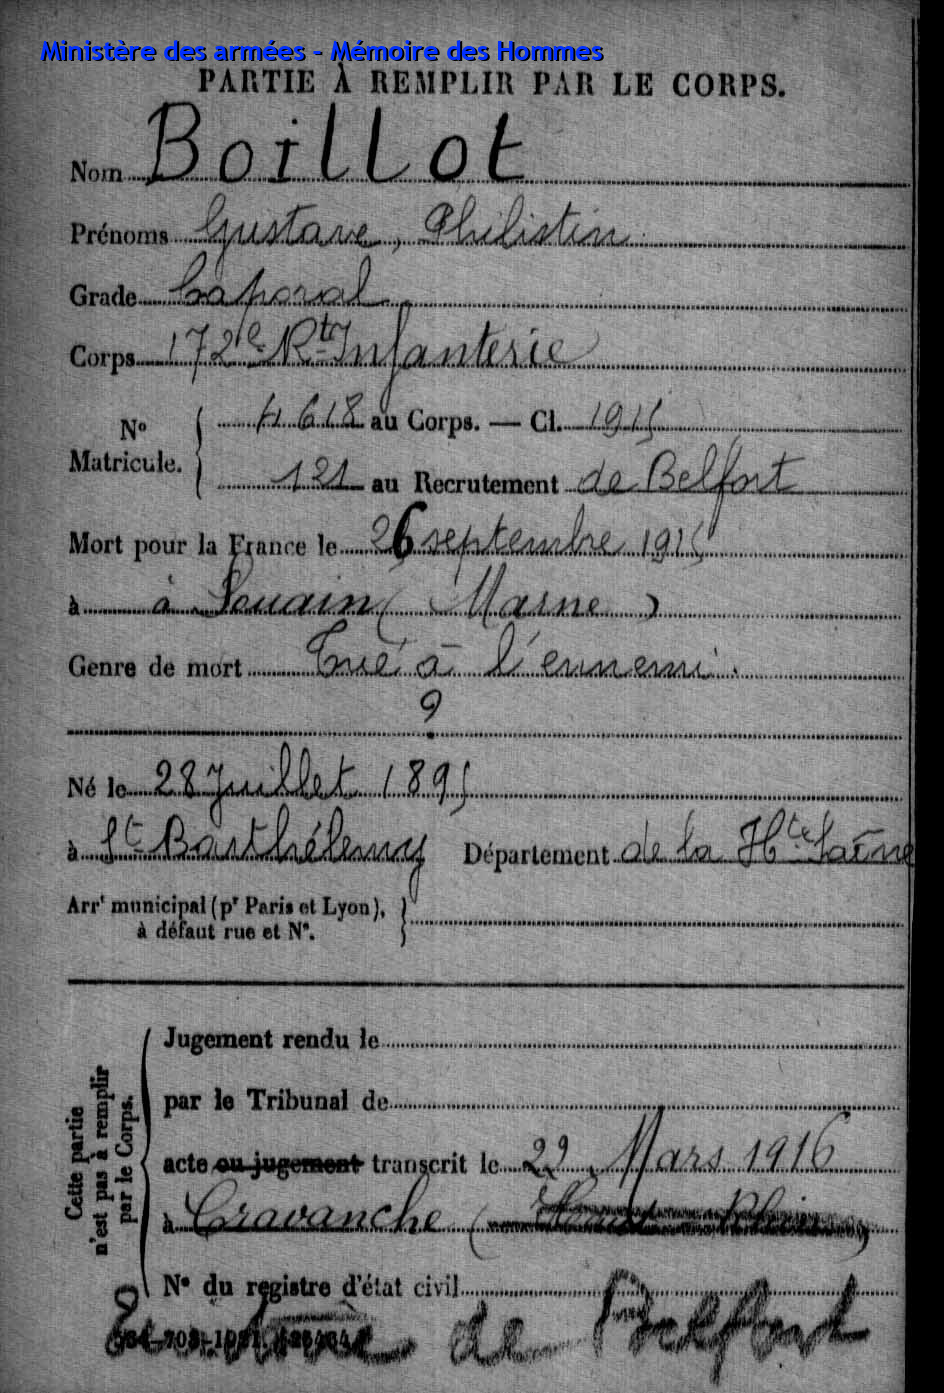 Ministère des armées - Mémoire des Hommes
PARTIE À REMPLIR PAR LE CORPS.
Nom Boillot
Prénoms Gustave, Philistin
Grade Caporal
Corps 172e Rt Infanterie
No Matricule. 4618 au Corps. — Cl. 1915
121 au Recrutement de Belfort
Mort pour la France le 26 septembre 1915
à à Souain (Marne)
Genre de mort Tué à l'ennemi.
9
Né le 28 Juillet 1895
à St Barthélemy Département de la Hte Saône
Arrt municipal (pr Paris et Lyon), à défaut rue et No.
Cette partie n'est pas à remplir par le Corps.
Jugement rendu le
par le Tribunal de
acte ou jugement transcrit le 22 Mars 1916
à Cravanche (Haut-Rhin)
No du registre d'état civil
Territoire de Belfort